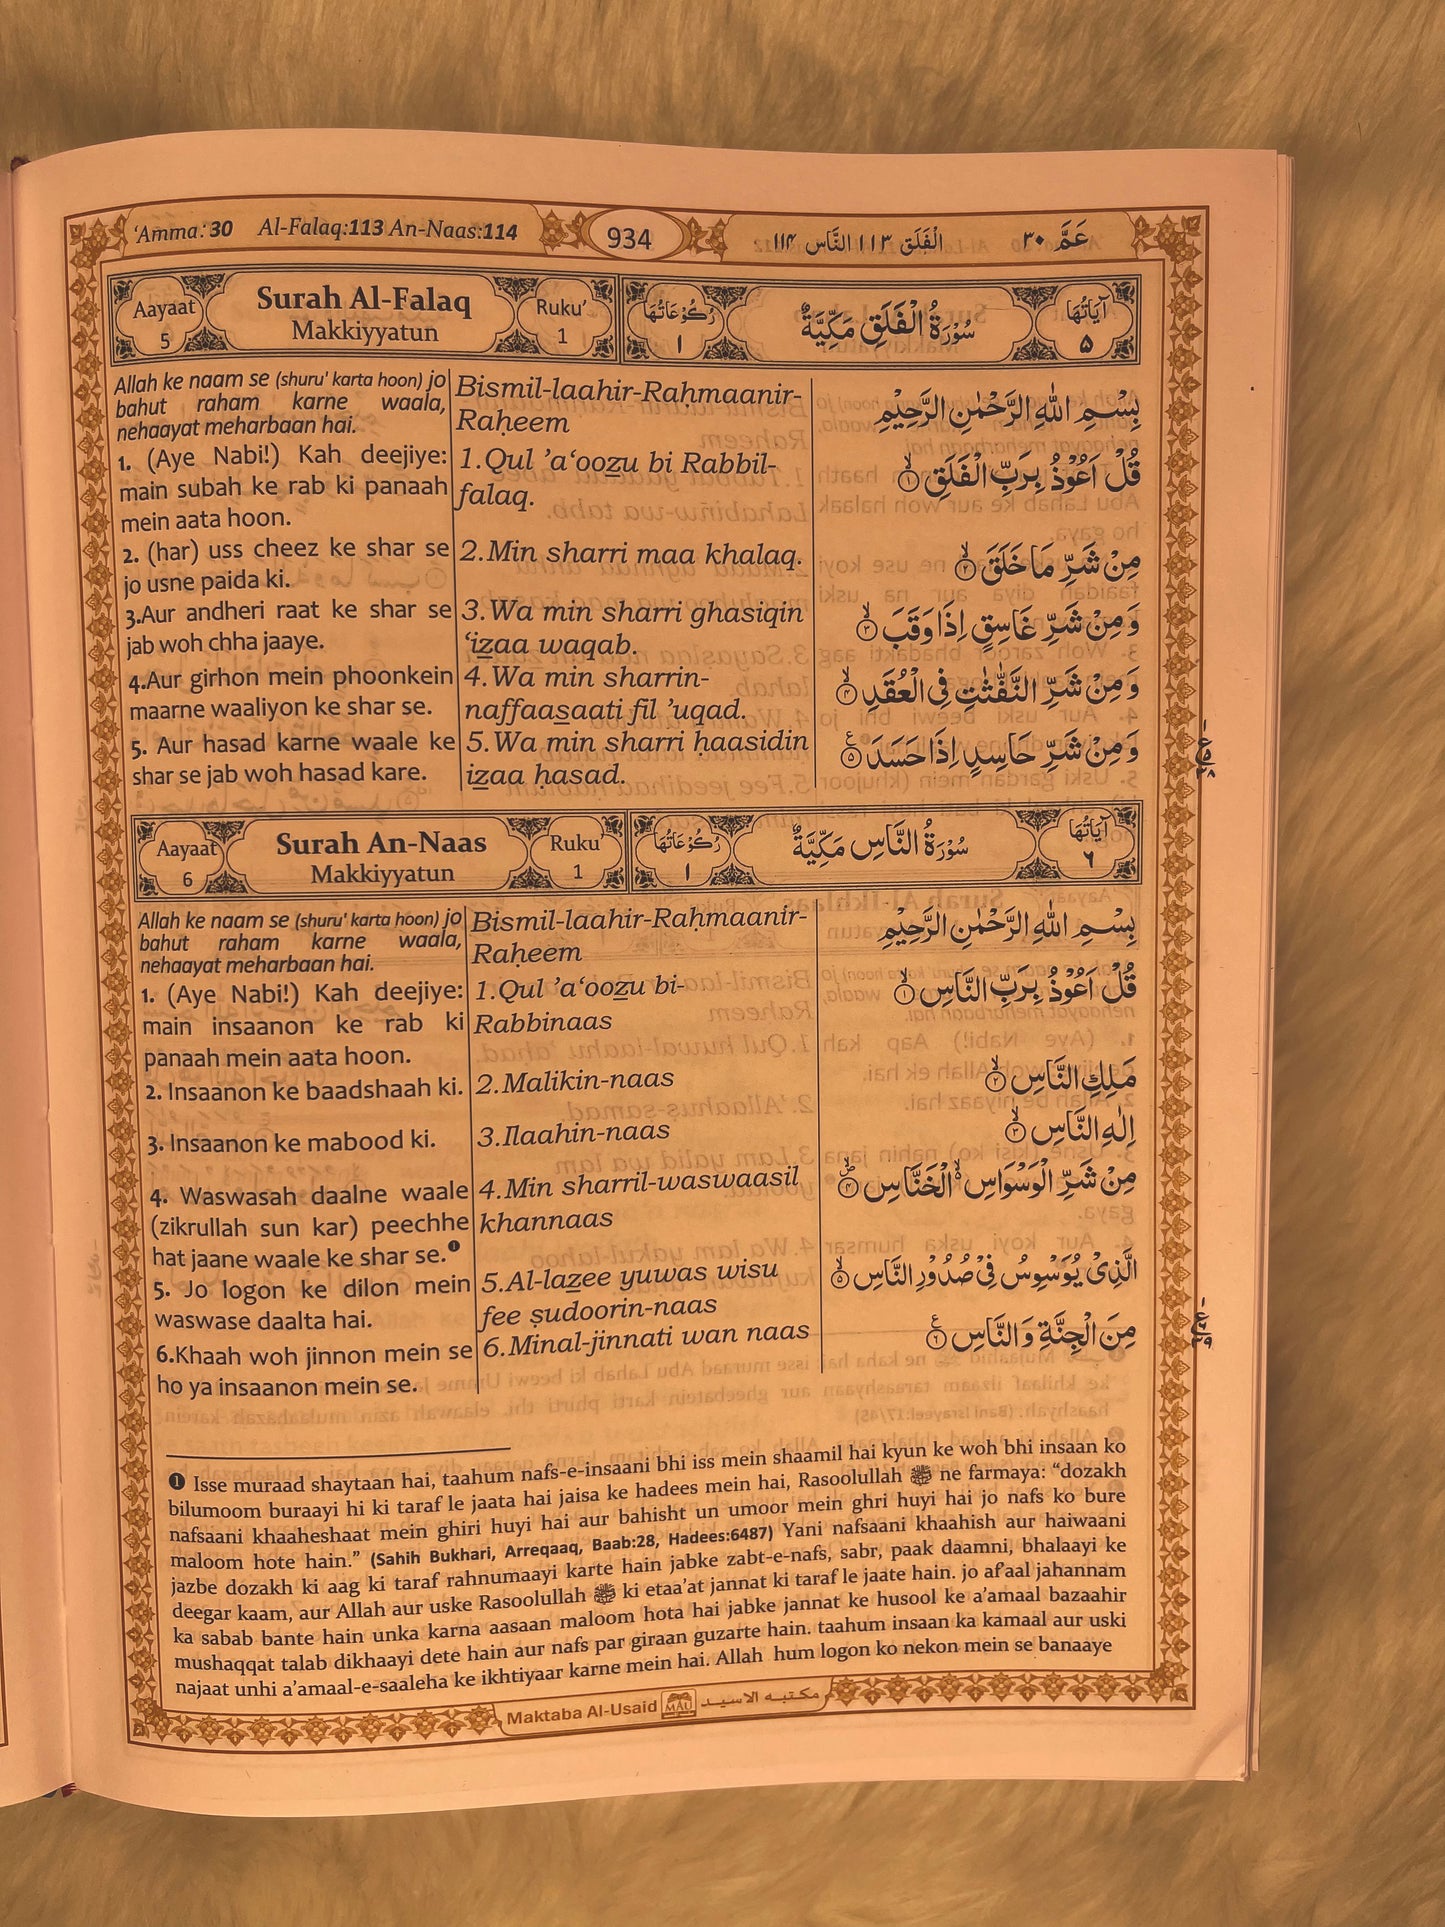 ‘Amma: 30 Al-Falaq:113 An-Naas:114
934
الْفَلَق ۱۱۳ النَّاس ۱۱۴
عَمَّ ۳۰
Aayaat
5
Surah Al-Falaq
Makkiyyatun
Ruku’
1
رُكُوْعَاتُهَا
۱
سُوْرَةُ الْفَلَقِ مَكِّيَّةٌ
اٰيَاتُهَا
۵
Allah ke naam se (shuru' karta hoon) jo
bahut raham karne waala,
nehaayat meharbaan hai.
1. (Aye Nabi!) Kah deejiye:
main subah ke rab ki panaah
mein aata hoon.
2. (har) uss cheez ke shar se
jo usne paida ki.
3.Aur andheri raat ke shar se
jab woh chha jaaye.
4.Aur girhon mein phoonkein
maarne waaliyon ke shar se.
5. Aur hasad karne waale ke
shar se jab woh hasad kare.
Bismil-laahir-Raḥmaanir-
Raḥeem
1.Qul ’a‘oozu bi Rabbil-
falaq.
2.Min sharri maa khalaq.
3.Wa min sharri ghasiqin
‘izaa waqab.
4.Wa min sharrin-
naffaasaati fil ’uqad.
5.Wa min sharri ḥaasidin
izaa ḥasad.
بِسْمِ اللهِ الرَّحْمٰنِ الرَّحِيْمِ
قُلْ اَعُوْذُ بِرَبِّ الْفَلَقِ ۱
مِنْ شَرِّ مَا خَلَقَ ۲
وَمِنْ شَرِّ غَاسِقٍ اِذَا وَقَبَ ۳
وَمِنْ شَرِّ النَّفّٰثٰتِ فِى الْعُقَدِ ۴
وَمِنْ شَرِّ حَاسِدٍ اِذَا حَسَدَ ۵
Aayaat
6
Surah An-Naas
Makkiyyatun
Ruku’
1
رُكُوْعَاتُهَا
۱
سُوْرَةُ النَّاسِ مَكِّيَّةٌ
اٰيَاتُهَا
۶
Allah ke naam se (shuru' karta hoon) jo
bahut raham karne waala,
nehaayat meharbaan hai.
1. (Aye Nabi!) Kah deejiye:
main insaanon ke rab ki
panaah mein aata hoon.
2. Insaanon ke baadshaah ki.
3. Insaanon ke mabood ki.
4. Waswasah daalne waale
(zikrullah sun kar) peechhe
hat jaane waale ke shar se.❶
5. Jo logon ke dilon mein
waswase daalta hai.
6.Khaah woh jinnon mein se
ho ya insaanon mein se.
Bismil-laahir-Raḥmaanir-
Raḥeem
1.Qul ’a‘oozu bi-
Rabbinaas
2.Malikin-naas
3.Ilaahin-naas
4.Min sharril-waswaasil
khannaas
5.Al-lazee yuwas wisu
fee ṣudoorin-naas
6.Minal-jinnati wan naas
بِسْمِ اللهِ الرَّحْمٰنِ الرَّحِيْمِ
قُلْ اَعُوْذُ بِرَبِّ النَّاسِ ۱
مَلِكِ النَّاسِ ۲
اِلٰهِ النَّاسِ ۳
مِنْ شَرِّ الْوَسْوَاسِ الْخَنَّاسِ ۴
الَّذِىْ يُوَسْوِسُ فِىْ صُدُوْرِ النَّاسِ ۵
مِنَ الْجِنَّةِ وَالنَّاسِ ۶
❶ Isse muraad shaytaan hai, taahum nafs-e-insaani bhi iss mein shaamil hai kyun ke woh bhi insaan ko
bilumoom buraayi hi ki taraf le jaata hai jaisa ke hadees mein hai, Rasoolullah ﷺ ne farmaya: “dozakh
nafsaani khaaheshaat mein ghiri huyi hai aur bahisht un umoor mein ghri huyi hai jo nafs ko bure
maloom hote hain.” (Sahih Bukhari, Arreqaaq, Baab:28, Hadees:6487) Yani nafsaani khaahish aur haiwaani
jazbe dozakh ki aag ki taraf rahnumaayi karte hain jabke zabt-e-nafs, sabr, paak daamni, bhalaayi ke
deegar kaam, aur Allah aur uske Rasoolullah ﷺ ki etaa’at jannat ki taraf le jaate hain. jo af’aal jahannam
ka sabab bante hain unka karna aasaan maloom hota hai jabke jannat ke husool ke a’amaal bazaahir
mushaqqat talab dikhaayi dete hain aur nafs par giraan guzarte hain. taahum insaan ka kamaal aur uski
najaat unhi a’amaal-e-saaleha ke ikhtiyaar karne mein hai. Allah hum logon ko nekon mein se banaaye
Maktaba Al-Usaid MAU مكتبه الاسيد